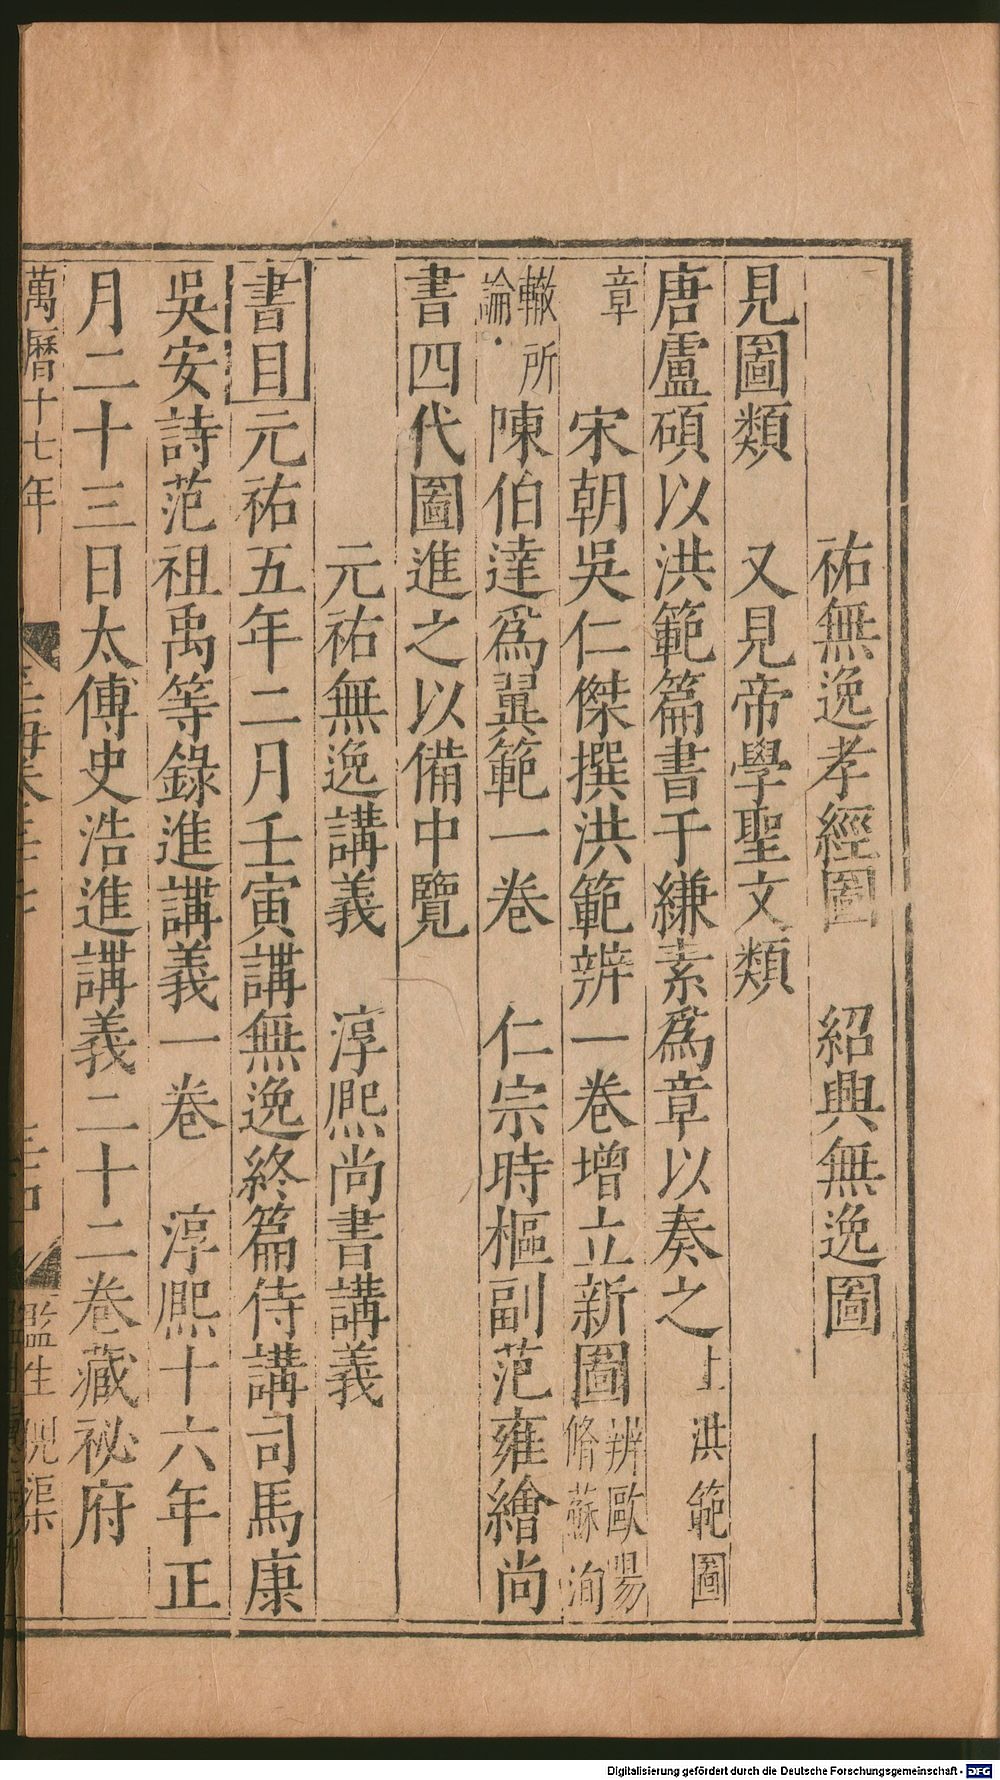 祐無逸孝經圖　紹興無逸圖
見圖類　又見帝學聖文類
唐盧碩以洪範篇書于縑素爲章以奏之上洪範圖
章　宋朝吳仁傑撰洪範辨一卷增立新圖辨歐陽脩蘇洵
轍所論陳伯達爲翼範一卷　仁宗時樞副范雍繪尚
書四代圖進之以備中覽
元祐無逸講義　淳熙尚書講義
書目元祐五年二月壬寅講無逸終篇侍講司馬康
吳安詩范祖禹等錄進講義一卷　淳熙十六年正
月二十三日太傅史浩進講義二十二卷藏祕府
萬曆十七年
監生倪渠
Digitalisierung gefördert durch die Deutsche Forschungsgemeinschaft - DFG